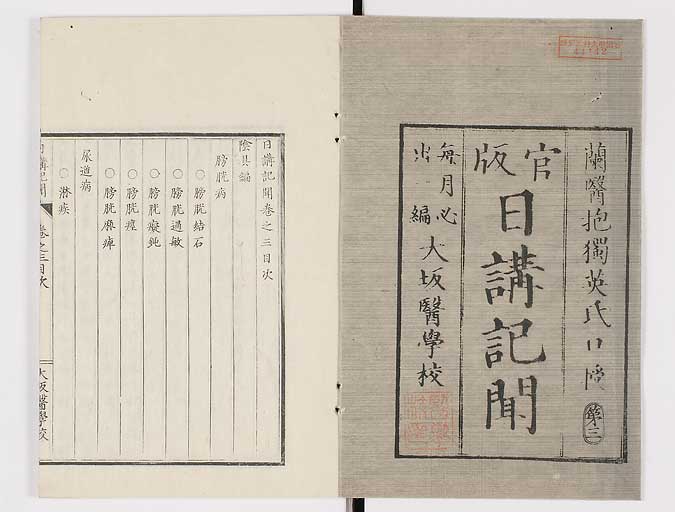 蘭醫抱獨英氏口授
第三
官版
日講記聞
毎月必出一編
大坂醫學校
日講記聞卷之三目次
陰具編
膀胱病
○膀胱結石
○膀胱過敏
○膀胱癡鈍
○膀胱痙
○膀胱麻痺
尿道病
○淋疾
日講記聞
卷之三目次
大坂醫學校